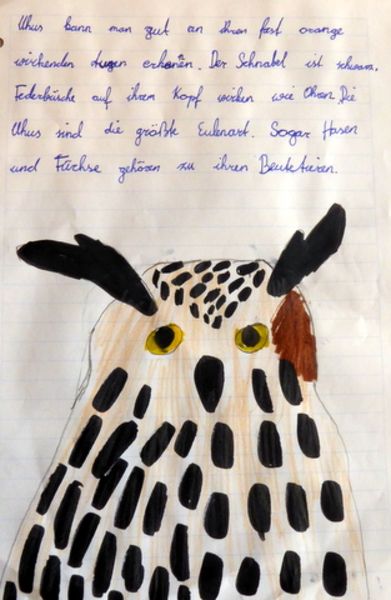 Uhus kann man gut an ihren fast orange
wirkenden Augen erkennen. Der Schnabel ist schwarz.
Federbüsche auf ihrem Kopf wirken wie Ohren. Die
Uhus sind die größte Eulenart. Sogar Hasen
und Füchse gehören zu ihren Beutetieren.